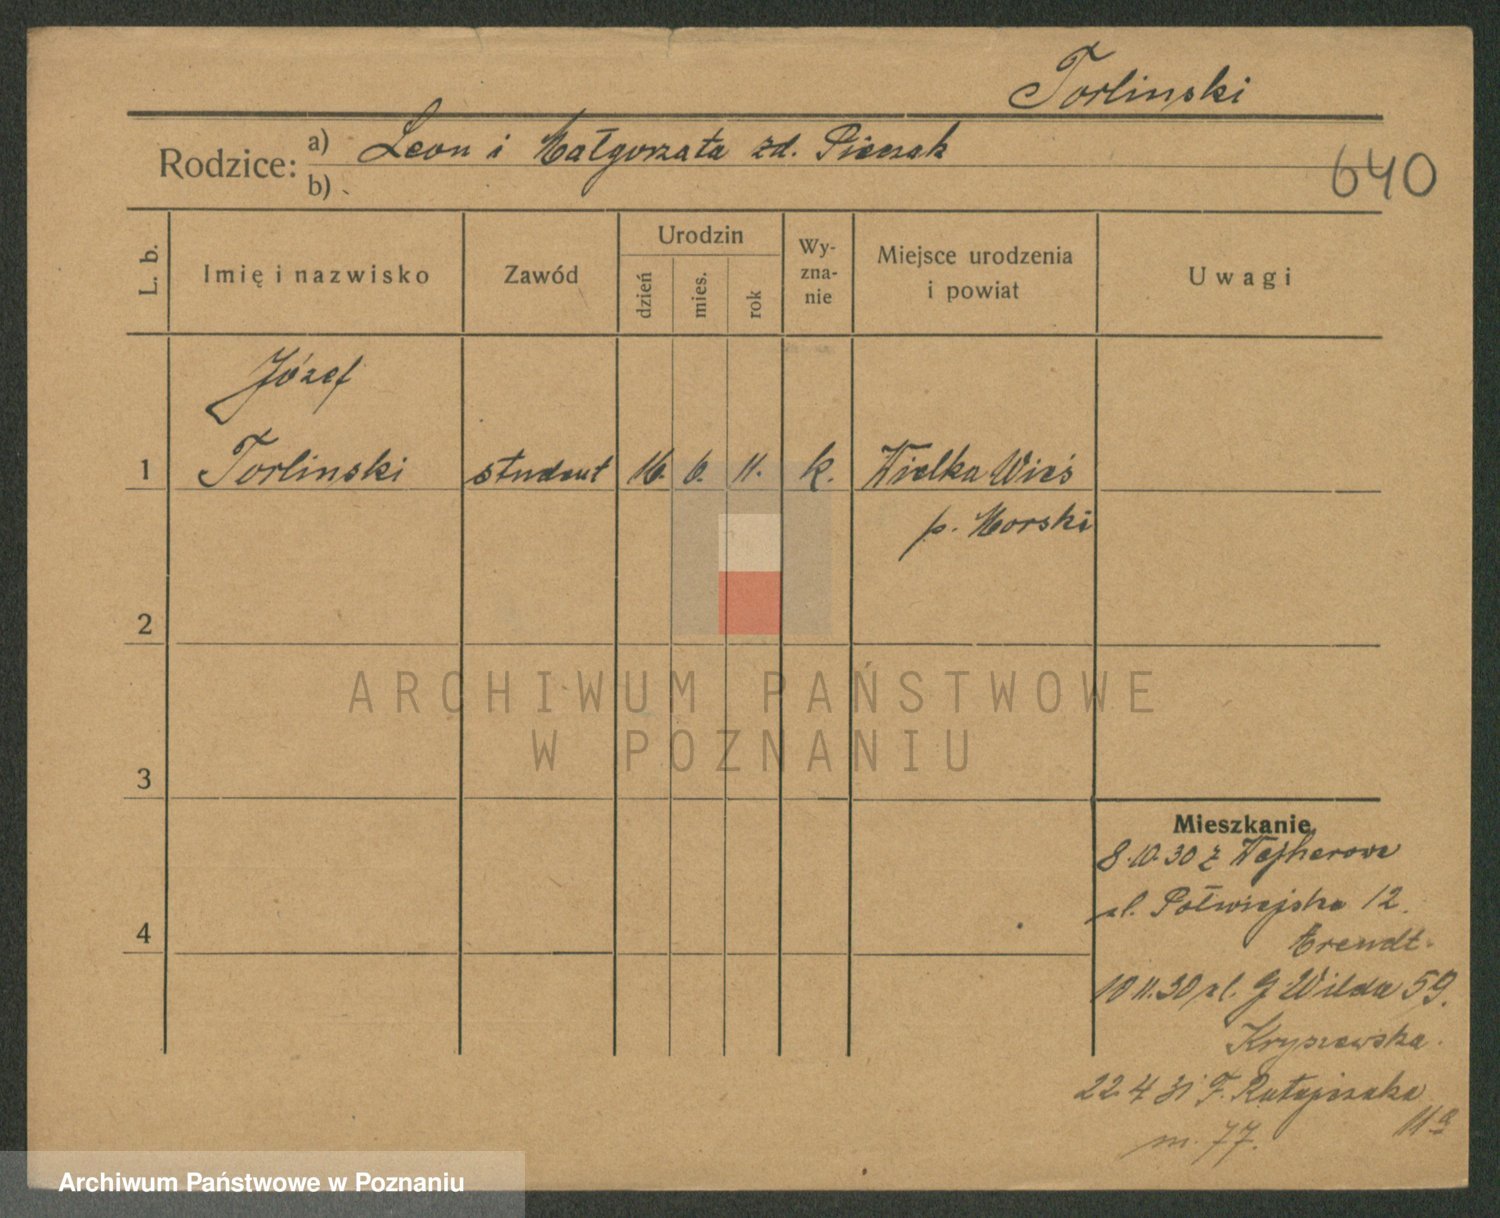 Torlinski
Rodzice: a) Leon i Małgorzata zd. Pieszak
b)
640
L. b.
Imię i nazwisko
Zawód
Urodzin
dzień
mies.
rok
Wy-
zna-
nie
Miejsce urodzenia
i powiat
Uwagi
Józef
1 Torlinski student 16. 6. 11. k. Wielka Wieś
p. Morski
2
ARCHIWUM PAŃSTWOWE
W POZNANIU
3
Mieszkanie
8.10.30 z Wejherowa
ul. Półwiejska 12.
4
Arendt.
10 11.30 ul. G Wilda 59.
Kryszewska.
22.4 31 F. Ratajczaka
11a
m. 77.
Archiwum Państwowe w Poznaniu